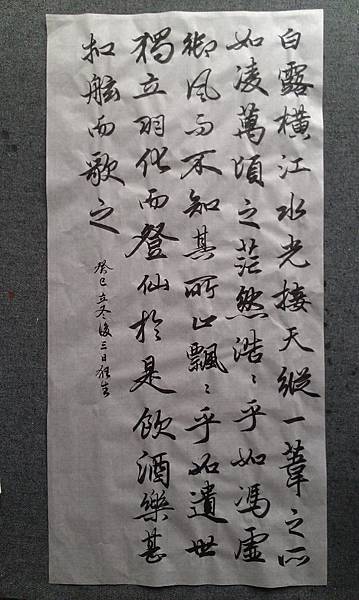 白露橫江水光接天縱一葦之所
如凌萬頃之茫然浩〻乎如馮虛
御風而不知其所止飄〻乎如遺世
獨立羽化而登仙於是飲酒樂甚
扣舷而歌之
癸巳立冬後三日狂生